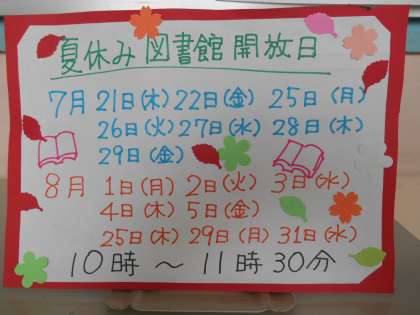 夏休み 図書館 開放日
7月 21日(木) 22日(金) 25日(月)
26日(火) 27日(水) 28日(木)
29日(金)
8月 1日(月) 2日(火) 3日(水)
4日(木) 5日(金)
25日(木) 29日(月) 31日(水)
10時 〜 11時 30分